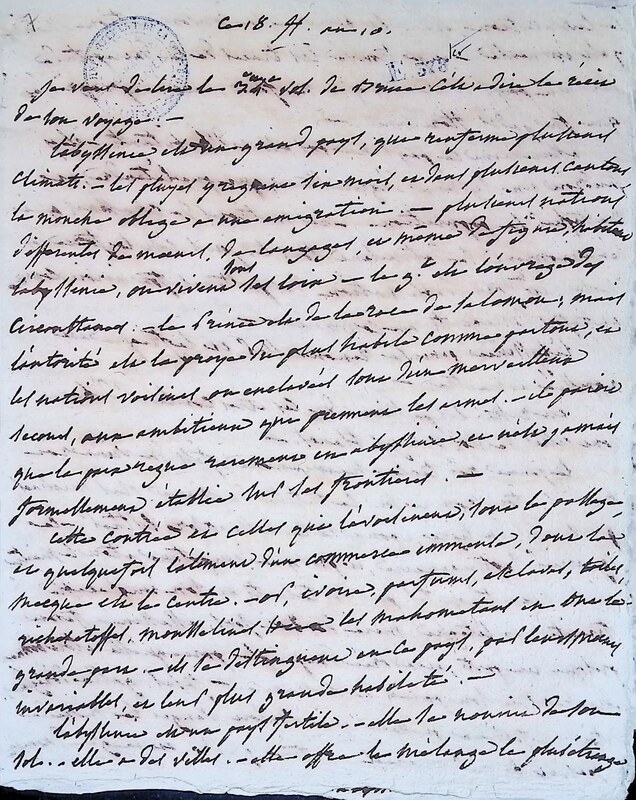 7
ce 18. fr. an 10.
je viens de lire le 2eme vol. de Bruce c'est a dire le récit
de son voyage. —
l'abyssinie est un grand pays, qui renferme plusieurs
climats. — les pluyes y regnent six mois, et dans plusieurs cantons
la mouche oblige a une emigration — plusieurs nations
differentes de mœurs, de langages, et même de figure, habitent
l'abyssinie, ou vivent sous ses loix — le gt est l'ouvrage des
circonstances. — le Prince est de la race de salomon; mais
l'autorité est la proye du plus habile comme partout, et
les nations voisines ou enclavées sont d'un merveilleux
secours, aux ambitieux qui prennent les armes. — il paroit
que la paix regne rarement en abyssinie, et n'est jamais
formellement établie sur ses frontieres. —
cette contrée et celles qui l'avoisinent, sont le passage,
et quelquefois l'aliment d'un commerce immense, dont la
mecque est le centre. — or, ivoire, parfums, esclaves, toiles
riches etoffes, mousselines, les mahometans en ont la
grande part — ils se distinguent en ce pays, par leurs mœurs
invariables, et leur plus grande habileté. —
l'abyssinie est un pays fertile. — elle se nourrit de son
sol. — elle a des villes. — elle offre le mélange le plus étrange